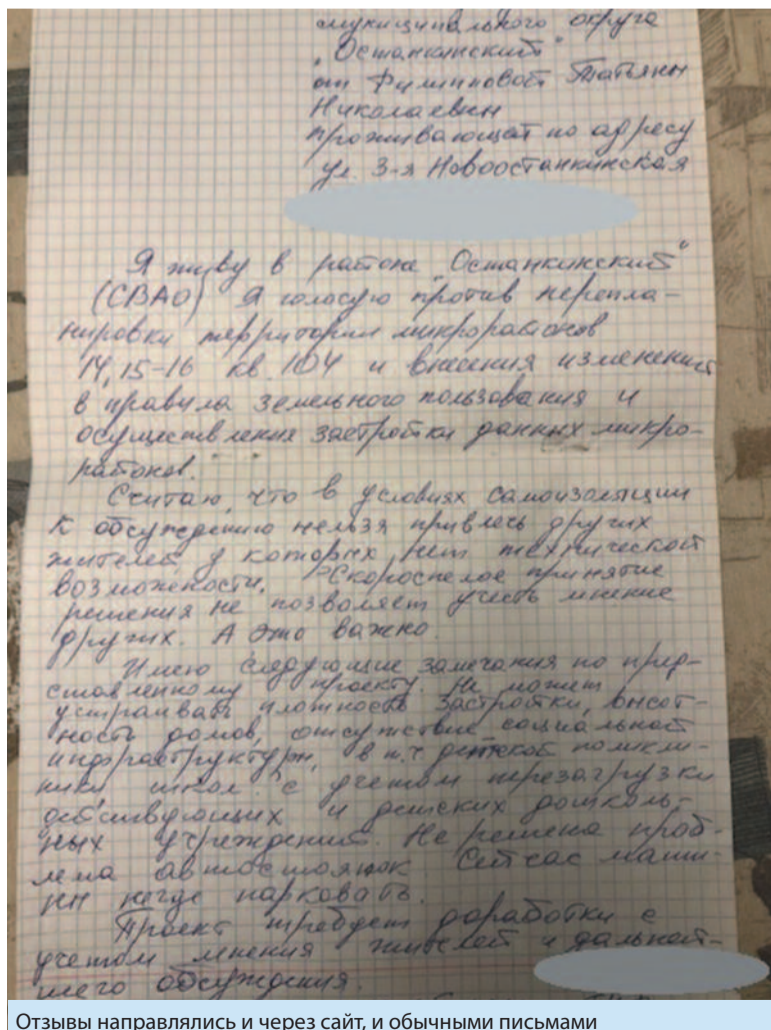 муниципального округа
"Останкинский"
от Филипповой Татьяны
Николаевны
проживающей по адресу
ул. 3-я Новоостанкинская
Я живу в районе "Останкинский"
(СВАО) Я голосую против перепла-
нировки территории микрорайонов
14, 15-16 кв. 104 и внесения изменений
в правила земельного пользования и
осуществления застройки данных микро-
районов.
Считаю, что в условиях самоизоляции
к обсуждению нельзя привлечь других
жителей, у которых нет технической
возможности. Скороспелое принятие
решения не позволяет учесть мнение
других. А это важно.
Имею следующие замечания по пред-
ставленному проекту. Не может
устраивать плотность застройки, высот-
ность домов, отсутствие социальной
инфраструктуры, в т.ч. детской поликли-
ники школ с учетом перезагрузки
действующих и детских дошколь-
ных учреждений. Не решена проб-
лема автостоянок Сейчас маши-
ны негде парковать.
Проект требует доработки с
учетом мнения жителей и дальней-
шего обсуждения.
Отзывы направлялись и через сайт, и обычными письмами